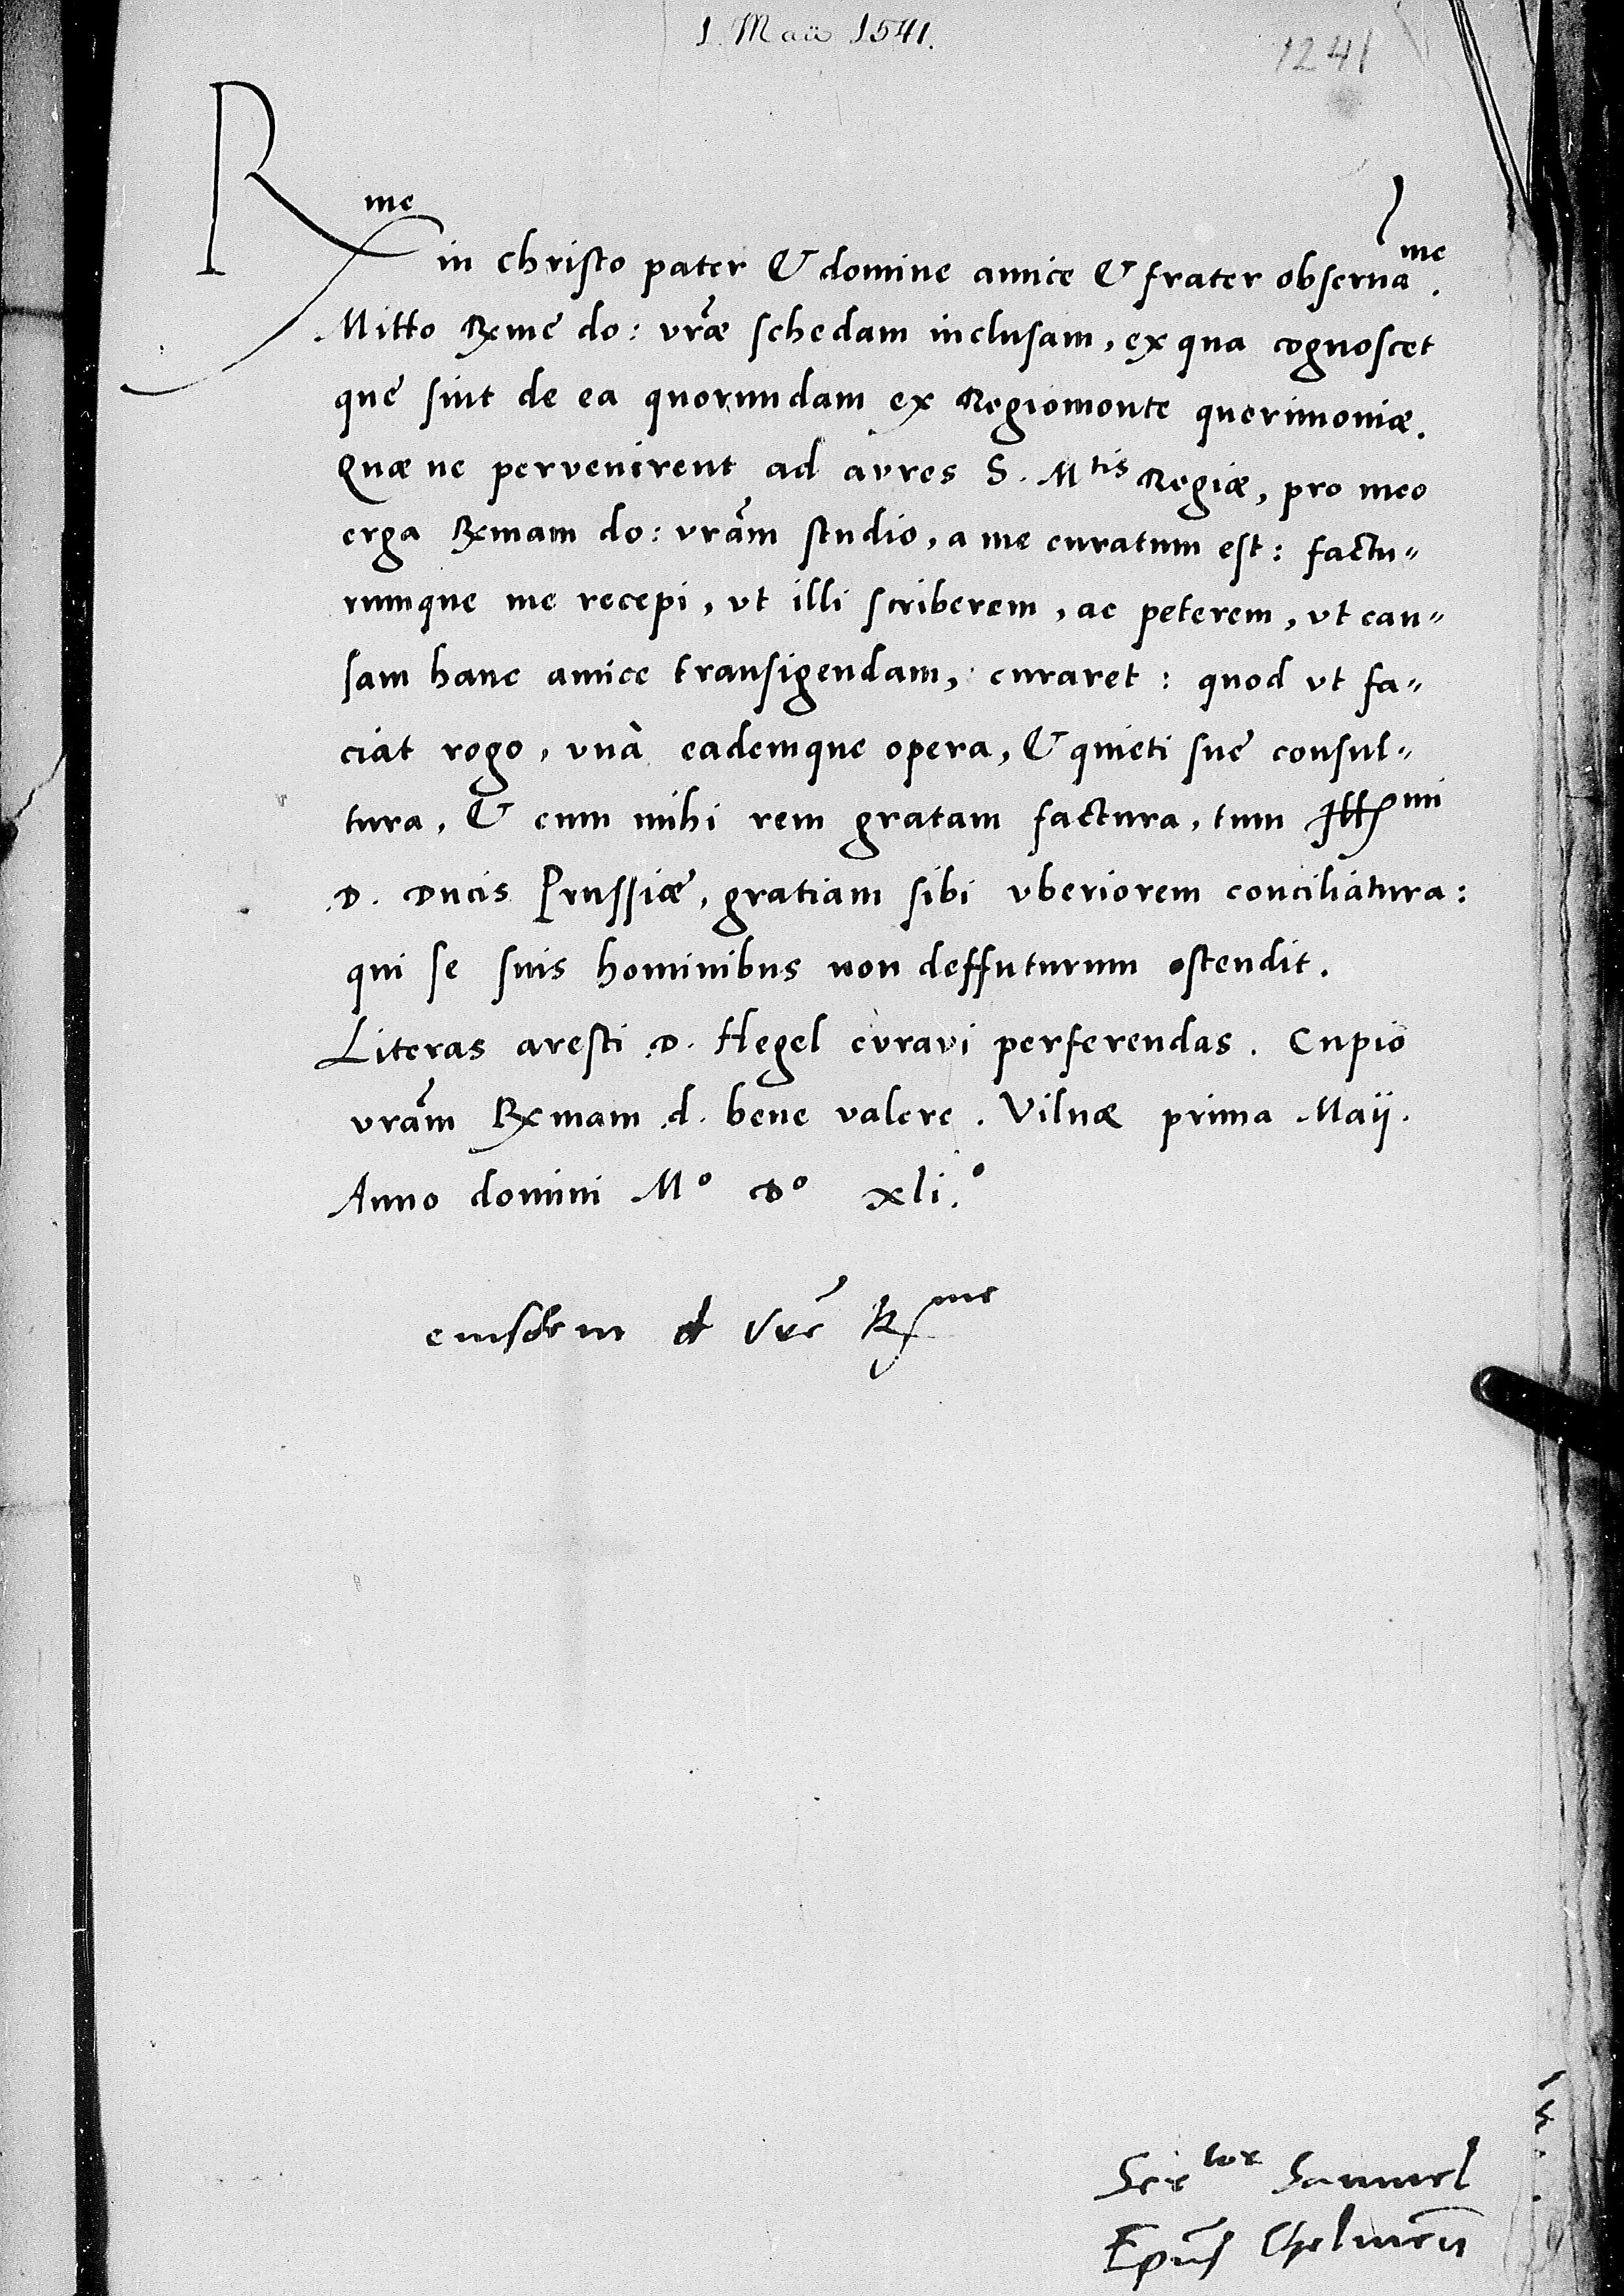 1. Maii 1541.
1241
R me
in christo pater & domine amice & frater obserua me.
Mitto Rxme do: vrãe schedam inclusam, ex qua cognoscet
que sint de ea quorundam ex Regiomonte querimoniæ.
Quæ ne pervenirent ad avres S. Mtis Regiæ, pro meo
erga Rxmam do: vrãm studio, a me curatum est: factu"
rumque me recepi, vt illi scriberem, ac peterem, vt cau"
sam hanc amice transigendam, curaret: quod vt fa"
ciat rogo, vnà eademque opera, & quieti sue consul"
tura, & cum mihi rem gratam factura, tum Illmi
D. Ducis Prussiæ, gratiam sibi vberiorem conciliatura:
qui se suis hominibus non deffuturum ostendit.
Literas aresti D. Hegel cvravi perferendas. Cupio
vrãm Rxmam d. bene valere. Vilnæ prima Maij.
Anno domini Mo Do xli.o
eiusdem d Vre Rme
Seruitor Samuel
Epus Chelmen